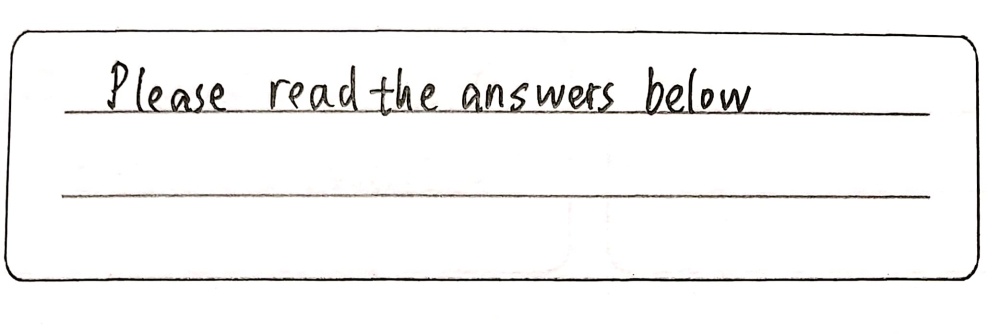 Please read the answers below